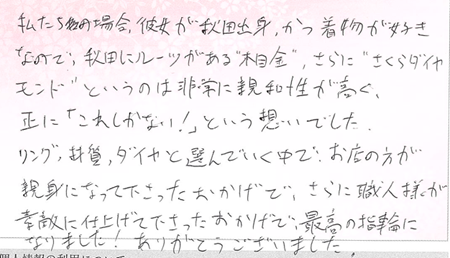 私たち2名の場合、彼女が秋田出身、かつ着物が好き
なので、秋田にルーツがある"木目金"、さらに"さくらダイヤ
モンド"というのは非常に親和性が高く、
正に「これしかない!」という想いでした。
リング、材質、ダイヤと選んでいく中で、お店の方が
親身になって下さったおかげで、さらに職人様が
素敵に仕上げて下さったおかげで、最高の指輪に
なりました!ありがとうございました。